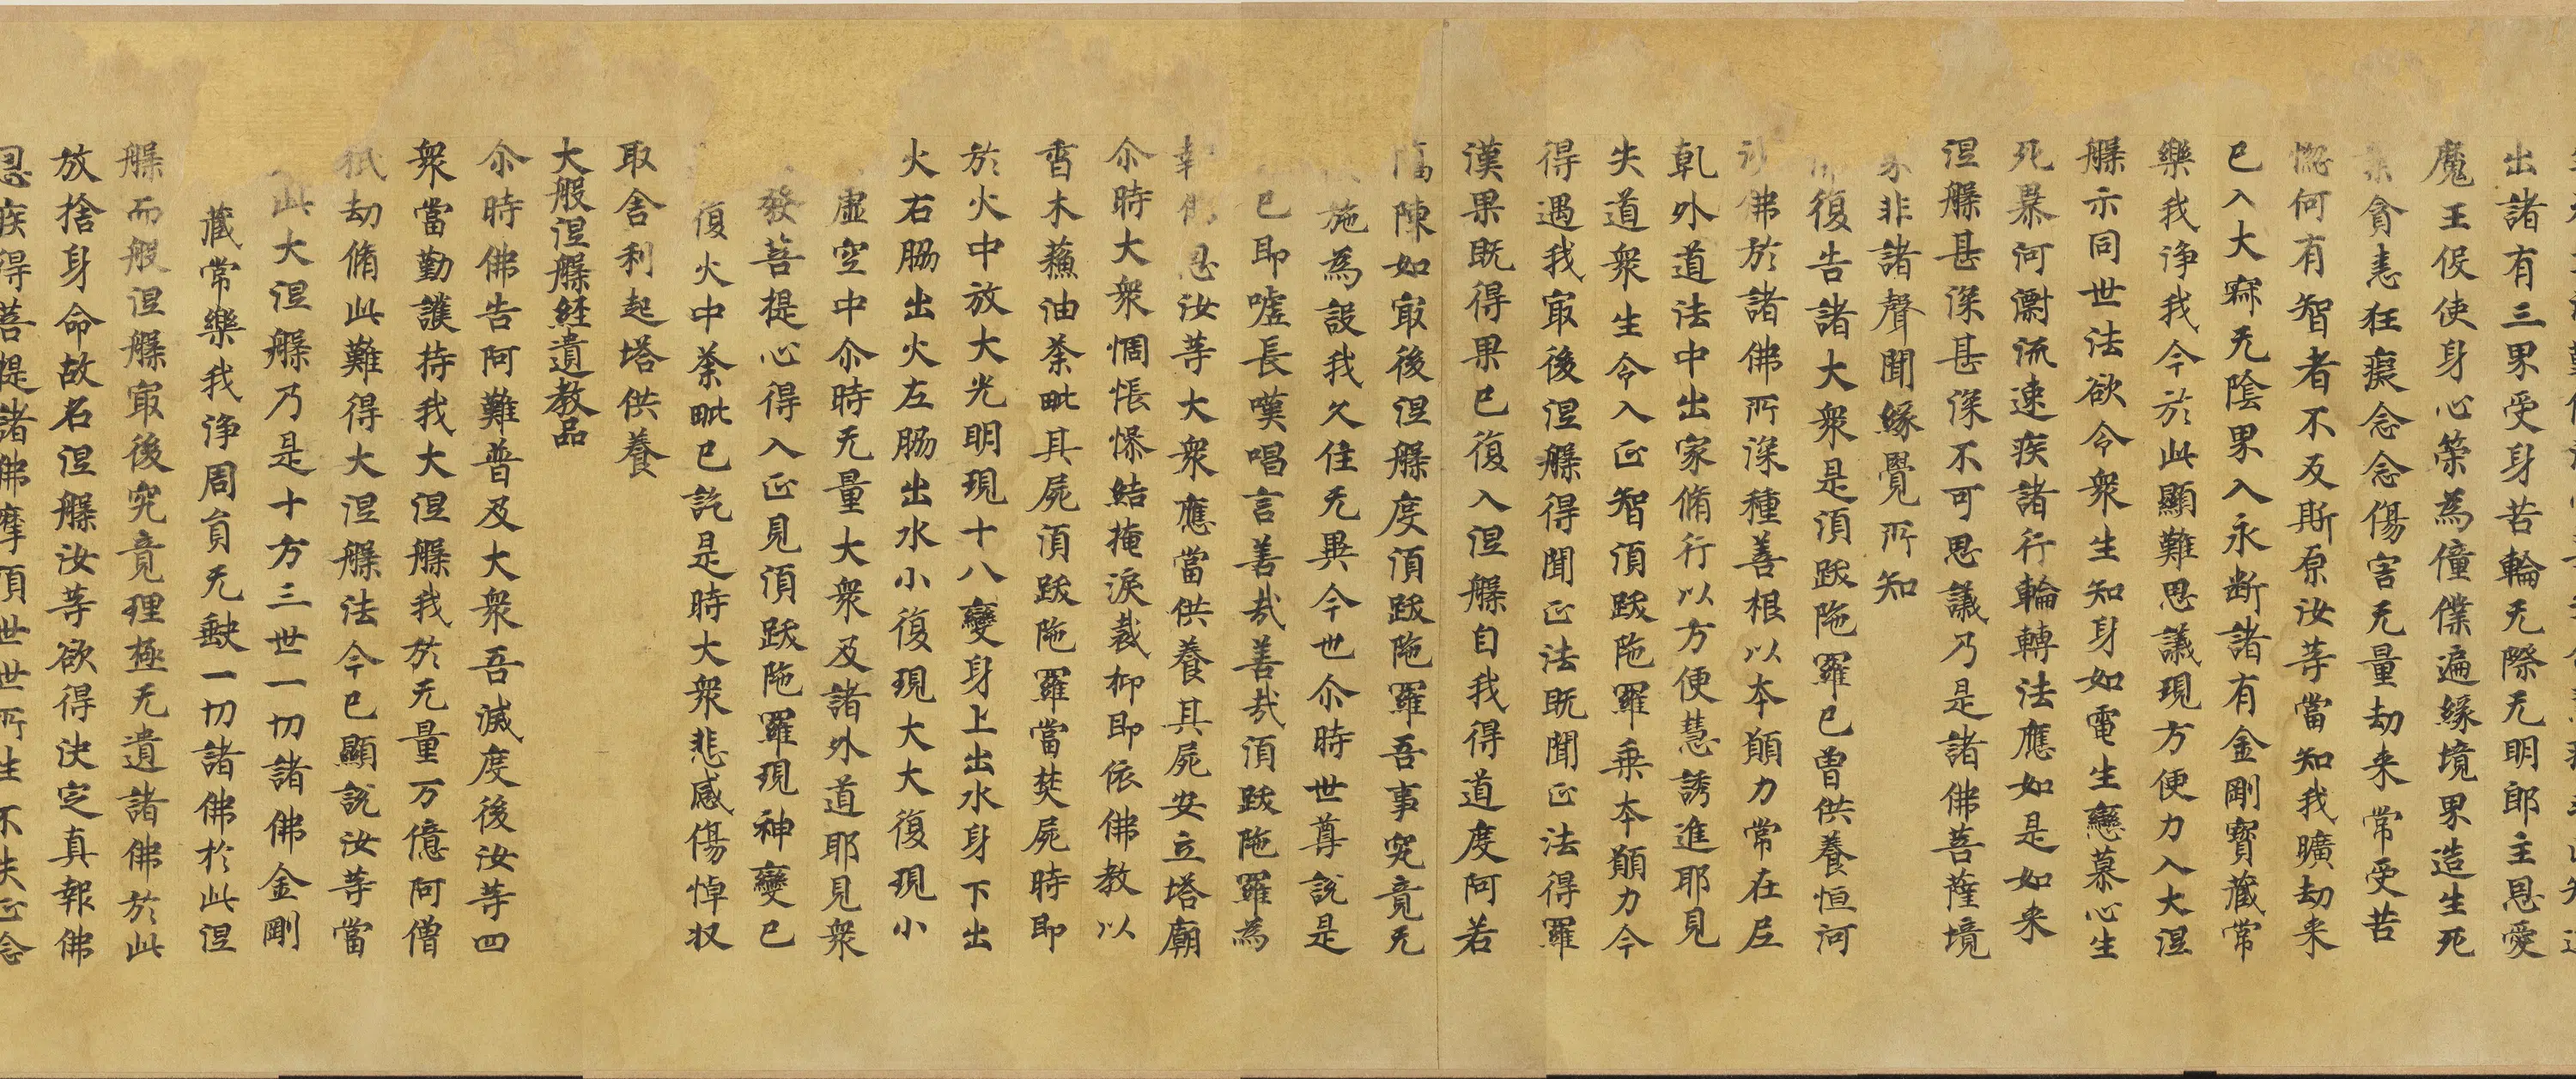 出諸有三界受身苦輪无際无明郎主恩愛
魔王伇使身心策為僮僕遍緣境界造生死
業貪恚狂癡念念傷害无量劫来常受苦
惱何有智者不及斯原汝等當知我曠劫来
已入大寂无陰界入永断諸有金剛寶藏常
樂我淨我今於此顯難思議現方便力入大涅
槃示同世法欲令衆生知身如電生戀慕心生
死暴河漂流速疾諸行輪轉法應如是如来
涅槃甚深甚深不可思議乃是諸佛菩薩境
界非諸聲聞緣覺所知
復告諸大衆是湏跋陁羅已曽供養恒河
沙佛於諸佛所深種善根以本願力常在尼
乹外道法中出家脩行以方便慧誘進耶見
失道衆生令入正智湏跋陁羅乗本願力今
得遇我冣後涅槃得聞正法既聞正法得羅
漢果既得果已復入涅槃自我得道度阿若
憍陳如冣後涅槃度湏跋陁羅吾事究竟无
施為設我久住无異今世尒時世尊說是
已即噓長嘆唱言善㢤善㢤湏跋陁羅為
報佛恩汝等大衆應當供養其屍安立塔廟
尒時大衆惆悵懆結掩淚裁抑即依佛教以
香木蘓油荼毗其屍湏跋陁羅當焚屍時即
於火中放大光明現十八變身上出水身下出
火右脇出火左脇出水小復現大大復現小
虛空中尒時无量大衆及諸外道耶見衆
發菩提心得入正見湏跋陁羅現神變已
復火中荼毗已訖是時大衆悲感傷悼収
取舎利起塔供養
大般涅槃経遺教品
尒時佛告阿難普及大衆吾滅度後汝等四
衆當勤護持我大涅槃我於无量万億阿僧
祇劫脩此難得大涅槃法今已顯說汝等當
此大涅槃乃是十方三世一切諸佛金剛
藏常樂我淨周貟无缺一切諸佛於此涅
槃而般涅槃冣後究竟理極无遺諸佛於此
放捨身命故名涅槃汝等欲得决定真報佛
恩疾得菩提諸佛摩頂世世所生不失正念